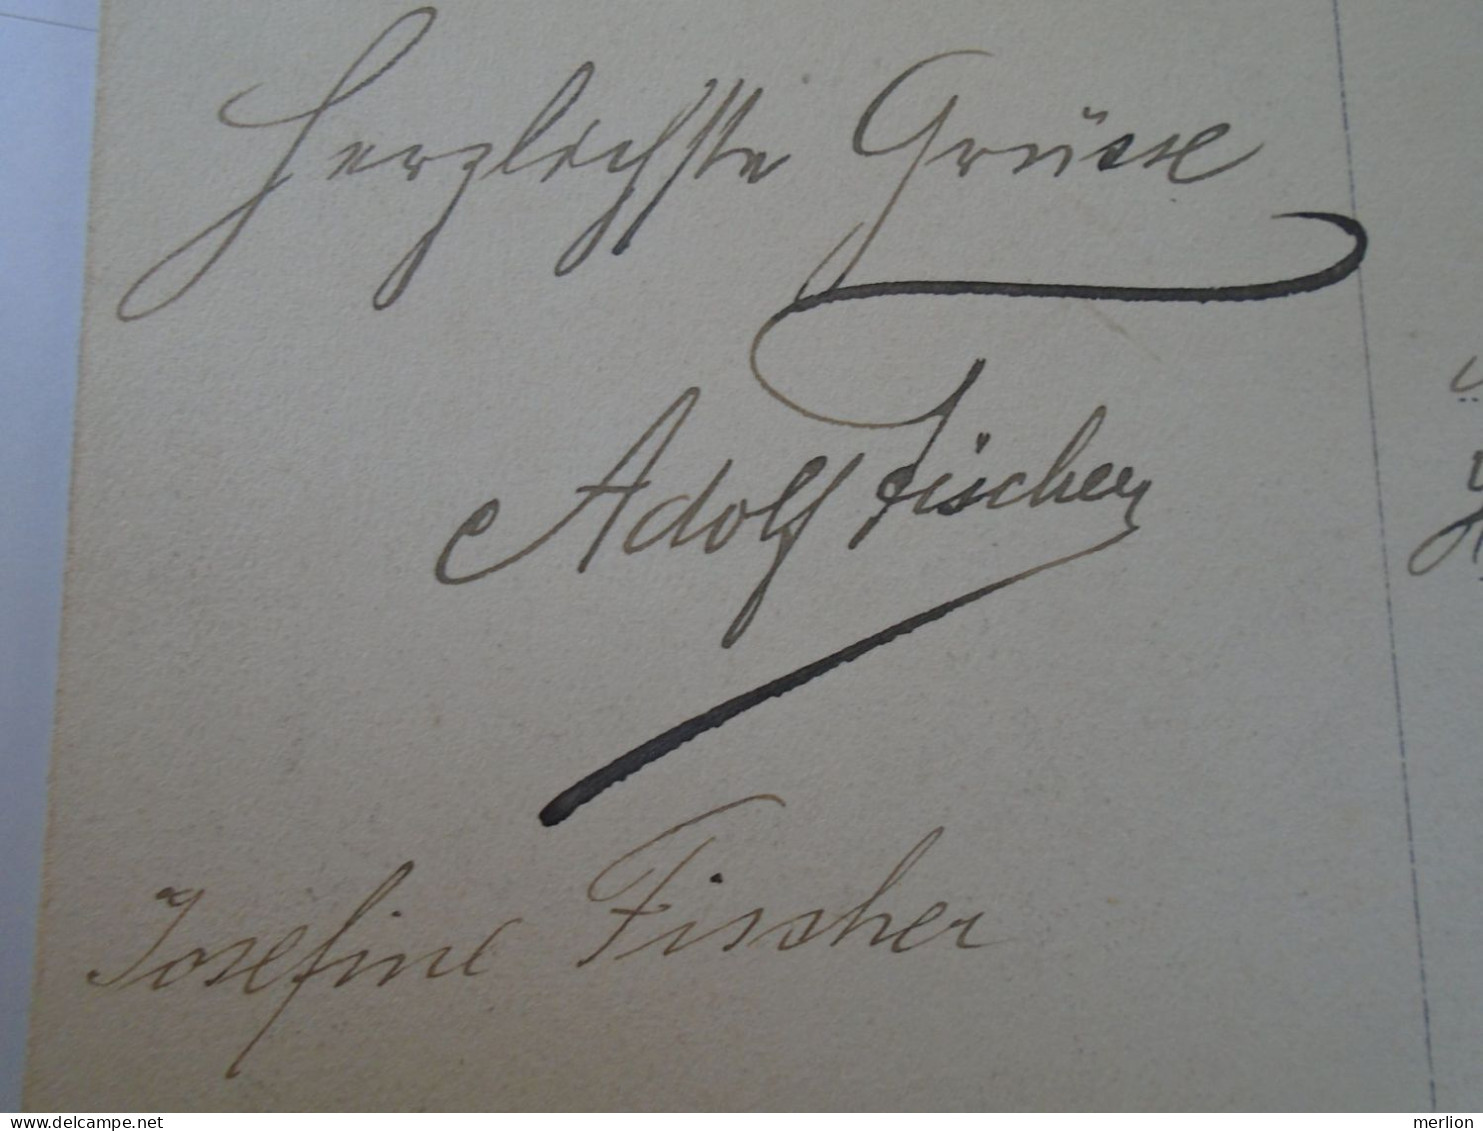 Herzlichste Grüsse
Adolf Fischer
Josefine Fischer
delcampe.net
merlion